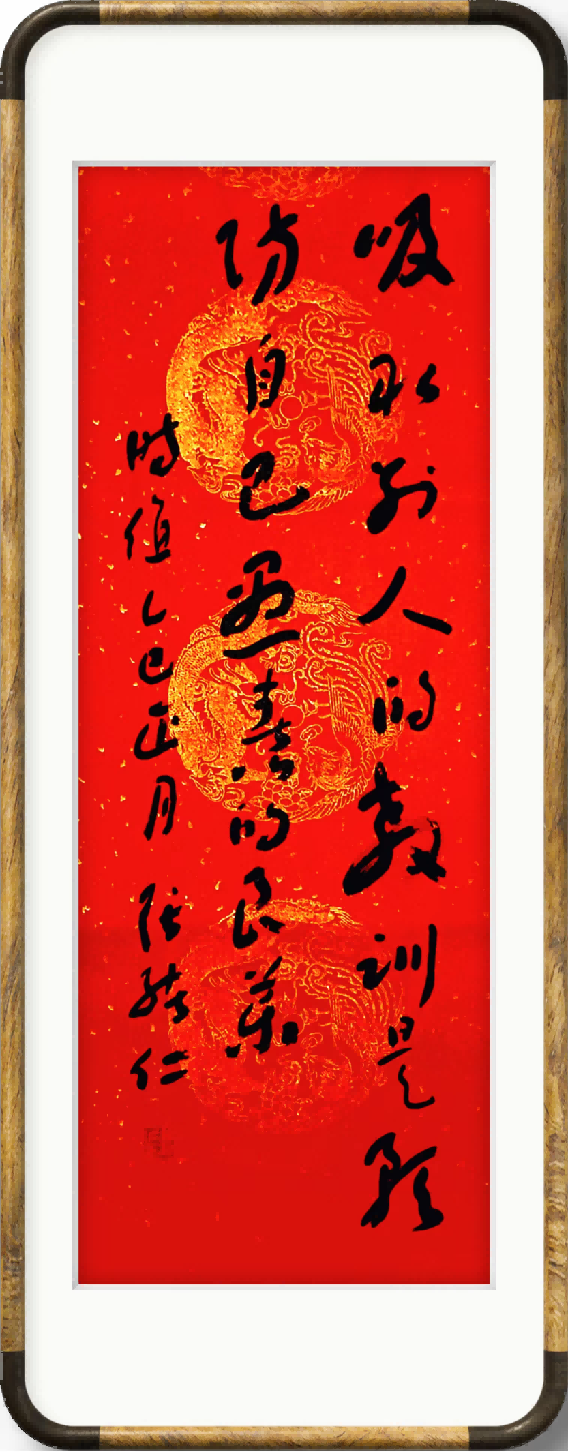 吸取别人的教训是预
防自己愚蠢的良药
时值乙巳正月 仁